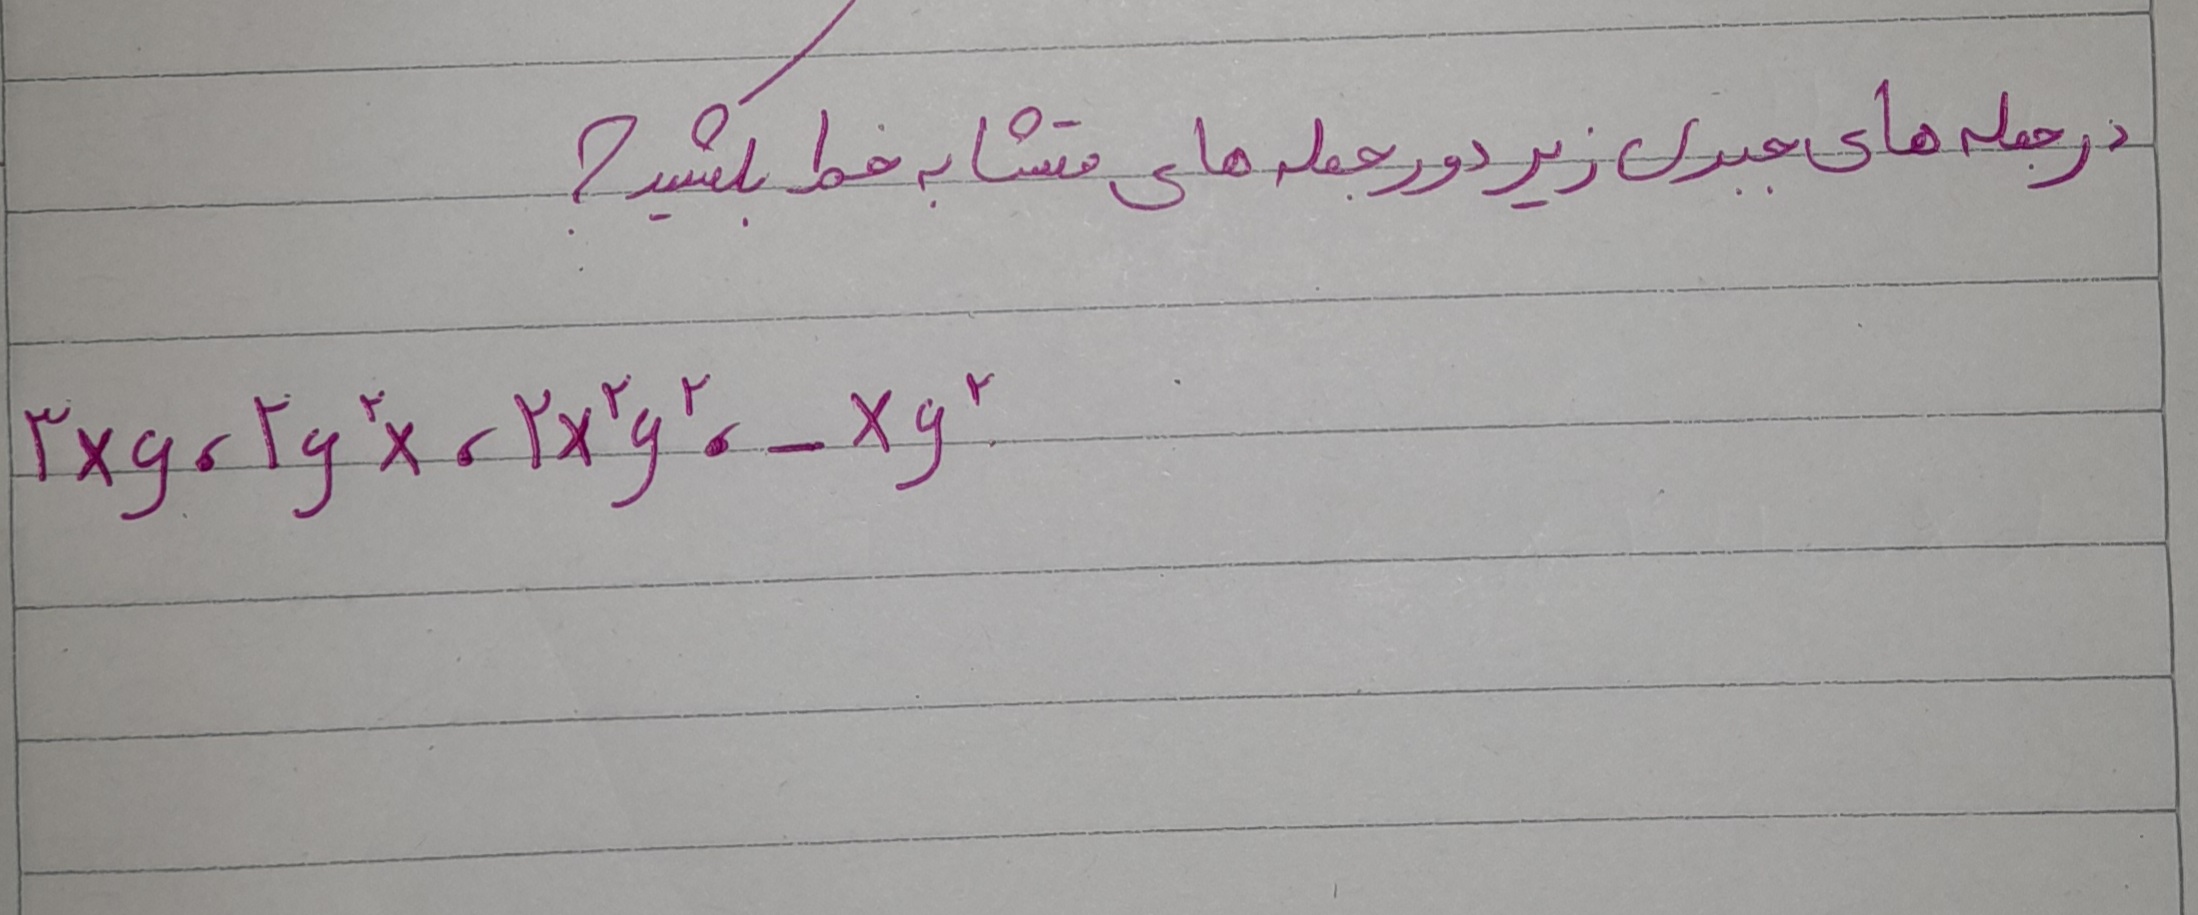 در جمله های جبری زیر دور جمله های متشابه خط بکشید؟
۳xy ، ۲y²x ، ۲x²y² ، -xy²